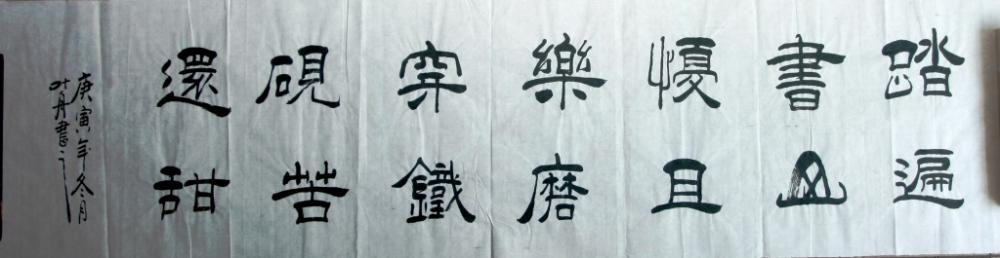 踏遍
書山
憂且
樂磨
穿鐵
硯苦
還甜
庚寅年冬月
叶丹書之